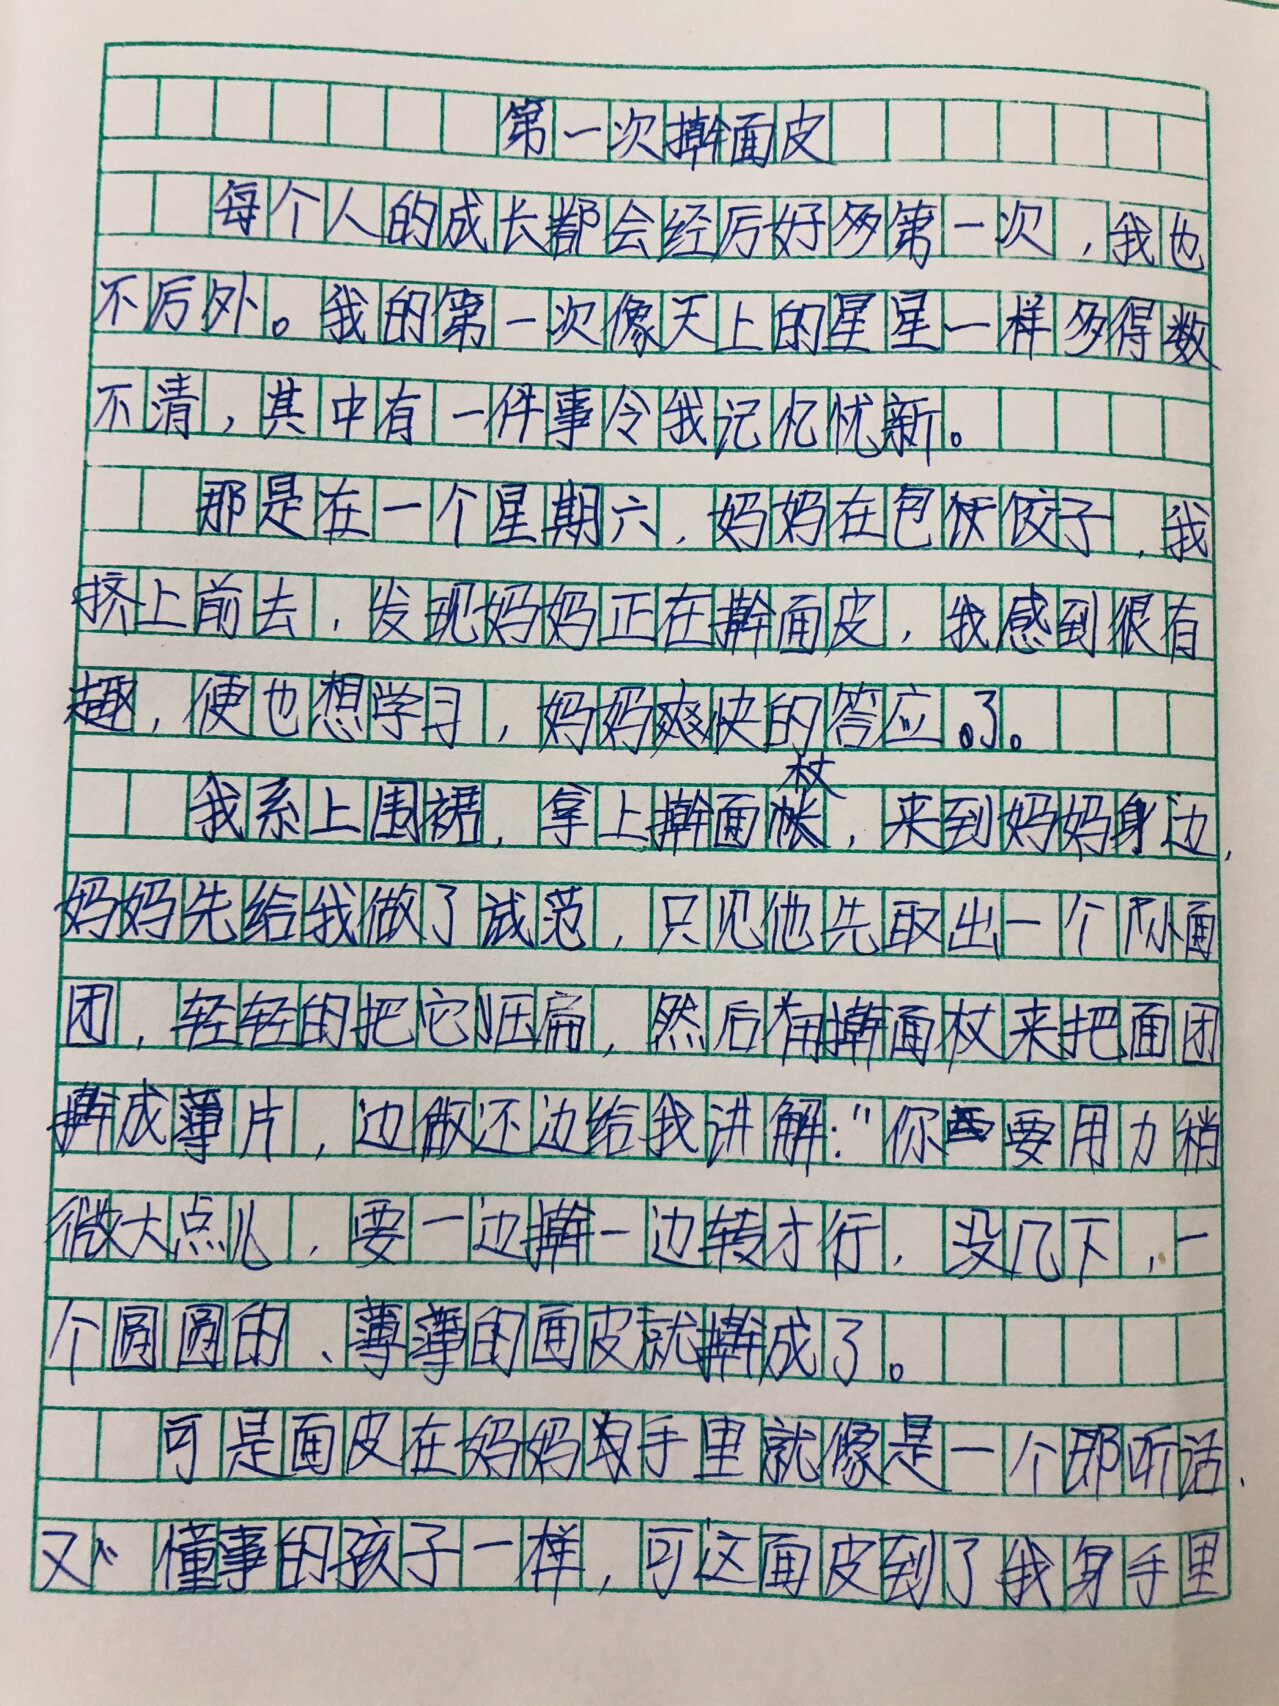 第一次擀面皮
每个人的成长都会经历好多第一次,我也
不历外。我的第一次像天上的星星一样多得数
不清,其中有一件事令我记忆忧新。
那是在一个星期六,妈妈在包饺子,我
挤上前去,发现妈妈正在擀面皮,我感到很有
趣,便也想学习,妈妈爽快的答应了。
我系上围裙,拿上擀面杖,来到妈妈身边,
妈妈先给我做了试范,只见他先取出一个小面
团,轻轻的把它压扁,然后用擀面杖来把面团
擀成薄片,边做还边给我讲解:"你要用力稍
微大点儿,要一边擀一边转才行,没几下,一
个圆圆的、薄薄的面皮就擀成了。
可是面皮在妈妈手里就像是一个即听话、
又懂事的孩子一样,可这面皮到了我身手里